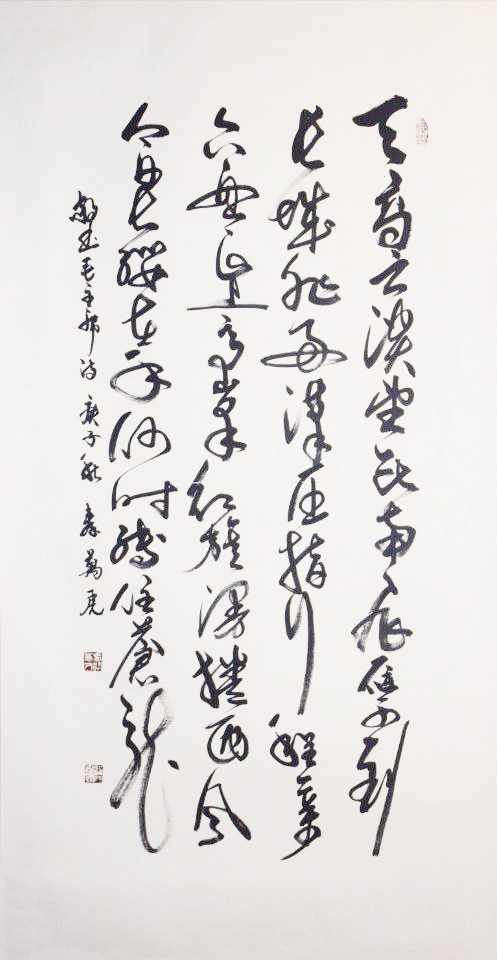 天高云淡望断南飞雁不到
长城非好汉屈指行程二万
六盘山上高峰红旗漫捲西风
今日长缨在手何时缚住蒼龙
敬书毛主席诗 庚子秋 萬虎